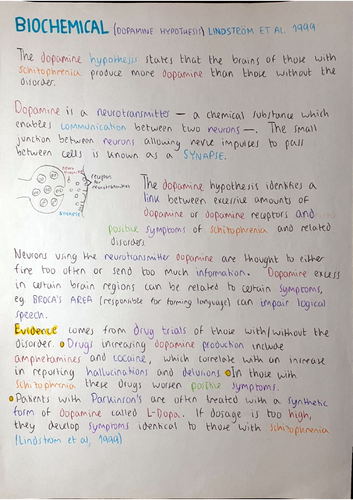 BIOCHEMICAL (DOPAMINE HYPOTHESIS) LINDSTRÖM ET AL. 1999
The dopamine hypothesis states that the brains of those with
schizophrenia produce more dopamine than those without the
disorder.
Dopamine is a neurotransmitter – a chemical substance which
enables communication between two neurons –. The small
junction between neurons allowing nerve impulses to pass
between cells is known as a SYNAPSE.
receptor
for
neurotransmitter
SYNAPSE
The dopamine hypothesis identifies a
link between excessive amounts of
dopamine or dopamine receptors and
positive symptoms of schizophrenia and related
disorders.
Neurons using the neurotransmitter dopamine are thought to either
fire too often or send too much information. Dopamine excess
in certain brain regions can be related to certain symptoms,
eg. BROCA'S AREA (responsible for forming language) can impair logical
speech.
Evidence comes from drug trials of those with/without the
disorder. • Drugs increasing dopamine production include
amphetamines and cocaine, which correlate with an increase
in reporting hallucinations and delusions • In those with
schizophrenia these drugs worsen positive symptoms.
• Patients with Parkinson's are often treated with a synthetic
form of dopamine called L-Dopa. If dosage is too high,
they develop symptoms identical to those with schizophrenia
(Lindström et al, 1999)